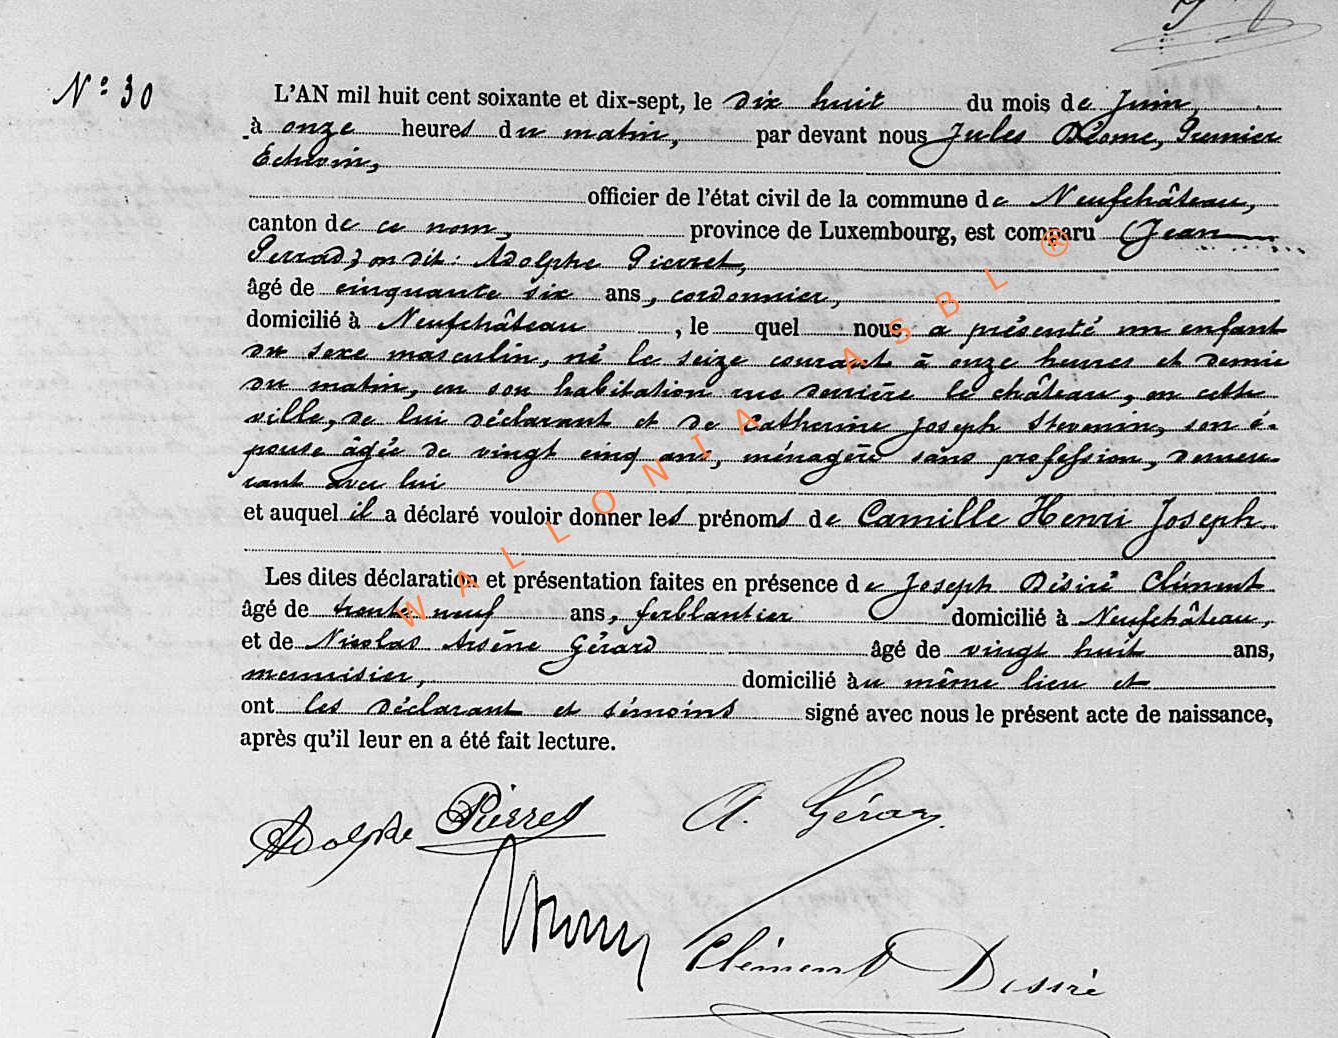 N° 30
L'AN mil huit cent soixante et dix-sept, le dix huit du mois de Juin,
à onze heures du matin, par devant nous Jules Premier
Echevin,
officier de l'état civil de la commune de Neufchâteau,
canton de ce nom, province de Luxembourg, est comparu (Jean
on dit: Adolphe Pierret,
âgé de cinquante six ans, cordonnier,
domicilié à Neufchâteau, le quel nous a présenté un enfant
du sexe masculin, né le seize courant à onze heures et demie
du matin, en son habitation rue derrière le château, en cette
ville, de lui déclarant et de Catherine Joseph Stevenin, son é-
pouse âgée de vingt cinq ans, ménagère sans profession, demeu-
rant avec lui
et auquel il a déclaré vouloir donner les prénoms de Camille Henri Joseph
Les dites déclaration et présentation faites en présence de Joseph Désiré Clément
âgé de trente neuf ans, ferblantier domicilié à Neufchâteau,
et de Nicolas Arsène Gérard âgé de vingt huit ans,
menuisier, domicilié au même lieu et
ont les déclarant et témoins signé avec nous le présent acte de naissance,
après qu'il leur en a été fait lecture.
Adolphe Pierret A. Gérard
Clément Désiré
WALLONIA ASBL ®